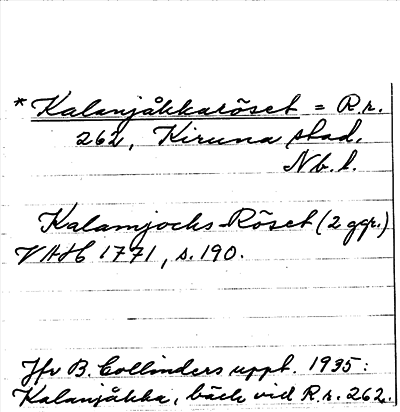 * Kalanjåkkaröset = R.r.
262, Kiruna stad.
Nb. l.
Kalamjocks-Röset (2 ggr.)
VAH 1771, s. 190.
Jfr B. Collinders uppt. 1935:
Kalanjåkka, bäck vid R.r. 262.